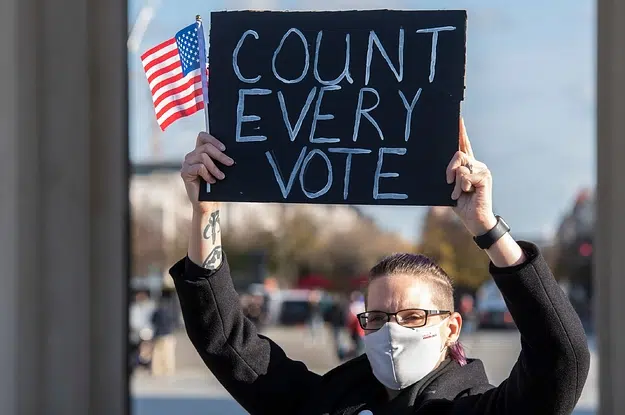 COUNT
EVERY
VOTE